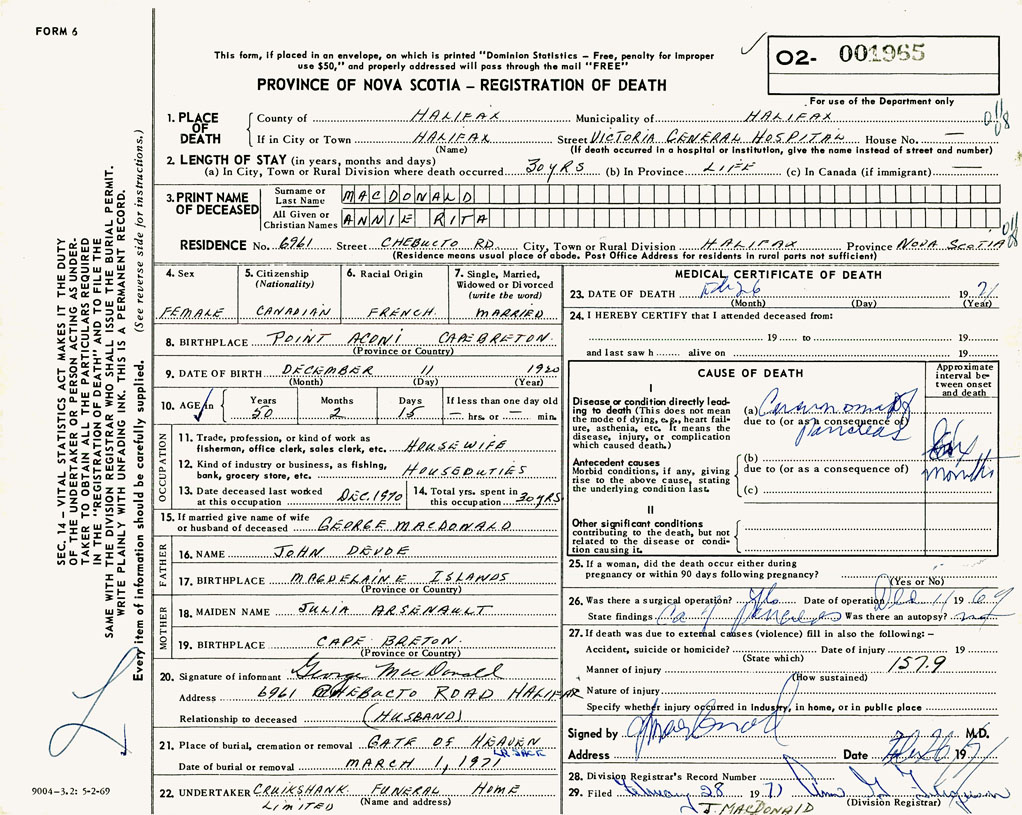 FORM 6
This form, if placed in an envelope, on which is printed "Dominion Statistics – Free, penalty for improper
use $50," and properly addressed will pass through the mail "FREE"
PROVINCE OF NOVA SCOTIA – REGISTRATION OF DEATH
O2- 001965
For use of the Department only
1. PLACE OF DEATH County of HALIFAX Municipality of HALIFAX
If in City or Town HALIFAX Street VICTORIA GENERAL HOSPITAL House No. —
(Name) (If death occurred in a hospital or institution, give the name instead of street and number)
2. LENGTH OF STAY (in years, months and days)
(a) In City, Town or Rural Division where death occurred 30 YRS (b) In Province LIFE (c) In Canada (if immigrant) —
3. PRINT NAME OF DECEASED Surname or Last Name MACDONALD
All Given or Christian Names ANNIE RITA
RESIDENCE No. 6961 Street CHEBUCTO RD. City, Town or Rural Division HALIFAX Province NOVA SCOTIA
(Residence means usual place of abode. Post Office Address for residents in rural parts not sufficient)
SEC. 14 – VITAL STATISTICS ACT MAKES IT THE DUTY
OF THE UNDERTAKER OR PERSON ACTING AS UNDER-
TAKER TO OBTAIN ALL THE PARTICULARS REQUIRED
IN THE "REGISTRATION OF DEATH" AND TO FILE THE
SAME WITH THE DIVISION REGISTRAR WHO SHALL ISSUE THE BURIAL PERMIT.
WRITE PLAINLY WITH UNFADING INK. THIS IS A PERMANENT RECORD.
Every item of information should be carefully supplied. (See reverse side for instructions.)
4. Sex FEMALE
5. Citizenship (Nationality) CANADIAN
6. Racial Origin FRENCH.
7. Single, Married, Widowed or Divorced (write the word) MARRIED
8. BIRTHPLACE POINT ACONI CAPE BRETON.
(Province or Country)
9. DATE OF BIRTH DECEMBER 11 1920
(Month) (Day) (Year)
10. AGE in Years 50 Months 2 Days 15 If less than one day — hrs. or — min.
OCCUPATION
11. Trade, profession, or kind of work as
fisherman, office clerk, sales clerk, etc. HOUSEWIFE
12. Kind of industry or business, as fishing,
bank, grocery store, etc. HOUSEDUTIES
13. Date deceased last worked at this occupation DEC. 1970
14. Total yrs. spent in this occupation 30 YRS
15. If married give name of wife
or husband of deceased GEORGE MACDONALD
FATHER
16. NAME JOHN DEVOE
17. BIRTHPLACE MAGDELAINE ISLANDS
(Province or Country)
MOTHER
18. MAIDEN NAME JULIA ARSENAULT
19. BIRTHPLACE CAPE BRETON.
(Province or Country)
20. Signature of informant George MacDonald
Address 6961 CHEBUCTO ROAD HALIFAX
Relationship to deceased (HUSBAND)
21. Place of burial, cremation or removal GATE OF HEAVEN
Date of burial or removal MARCH 1, 1971
22. UNDERTAKER CRUIKSHANK FUNERAL HOME
LIMITED (Name and address)
9004-3.2: 5-2-69
MEDICAL CERTIFICATE OF DEATH
23. DATE OF DEATH Feb 26 1971
(Month) (Day) (Year)
24. I HEREBY CERTIFY that I attended deceased from:
19 to 19
and last saw h alive on 19
CAUSE OF DEATH
Approximate interval between onset and death
I
Disease or condition directly lead-
ing to death (This does not mean
the mode of dying, e.g., heart fail-
ure, asthenia, etc. It means the
disease, injury, or complication
which caused death.)
(a) Carcinoma of
due to (or as a consequence of)
Pancreas
Antecedent causes
Morbid conditions, if any, giving
rise to the above cause, stating
the underlying condition last.
(b)
due to (or as a consequence of)
(c)
months
II
Other significant conditions
contributing to the death, but not
related to the disease or condi-
tion causing it.
25. If a woman, did the death occur either during
pregnancy or within 90 days following pregnancy?
(Yes or No)
26. Was there a surgical operation? Yes Date of operation Dec 11 1969
State findings Ca of Pancreas Was there an autopsy? not
27. If death was due to external causes (violence) fill in also the following: –
Accident, suicide or homicide? Date of injury 19
(State which)
Manner of injury 157.9
(How sustained)
Nature of injury
Specify whether injury occurred in industry, in home, or in public place
Signed by M.D.
Address Date Feb 26 1971
28. Division Registrar's Record Number
29. Filed February 28 1971
(Division Registrar)
J. MACDONALD